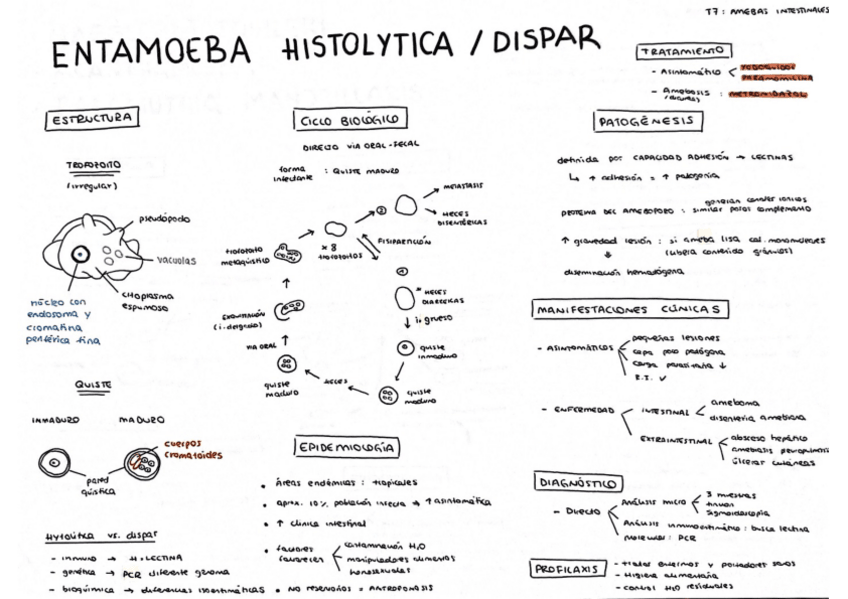 T7: AMEBAS INTESTINALES
ENTAMOEBA HISTOLYTICA / DISPAR
ESTRUCTURA
TROFOZOITO
(irregular)
pseudópodo
vacuolas
citoplasma
espumoso
núcleo con
endosoma y
cromatina
periférica fina
QUISTE
INMADURO
MADURO
cuerpos
cromatoides
pared
quística
Hytolítica vs. dispar
- inmuno → H: LECTINA
- genética → PCR diferente genoma
- bioquímica → diferencias isoentimáticas
CICLO BIOLÓGICO
DIRECTO VÍA ORAL-FECAL
forma
infectante : QUISTE MADURO
METASTASIS
HECES
DISENTÉRICAS
②
FISIPARICIÓN
trofozoito
metaquístico
x 8
trofozoitos
①
* HECES
DIARREICAS
↓ i. grueso
EXQUISTACIÓN
(i. delgado)
VÍA ORAL
quiste
inmaduro
quiste
maduro
HECES
quiste
maduro
EPIDEMIOLOGÍA
• áreas endémicas : tropicales
• aprox. 10% población infecta → ↑ asintomática
• ↑ clínica intestinal
• factores
favorecen
contaminación H2O
manipuladores alimentos
homosexuales
• NO RESERVORIOS = ANTROPONOSIS
TRATAMIENTO
- Asintomático <
PAROMOMICINA
- Amebosis
: METRONIDAZOL
PATOGÉNESIS
definida por CAPACIDAD ADHESIÓN → LECTINAS
↳ ↑ adhesión = ↑ patogenia
generan canales iónicos
PROTEÍNA DEL AMEBOPORO : similar poros complemento
↑ gravedad lesión : si ameba lisa cél. mononucleares
(libera contenido gránulos)
↓
diseminación hematógena
MANIFESTACIONES CLÍNICAS
- ASINTOMÁTICOS
pequeñas lesiones
cepa poco patógena
carga parasitaria ↓
S.I. ✓
- ENFERMEDAD
INTESTINAL
ameboma
disentería amebiana
EXTRAINTESTINAL
absceso hepático
amebiasis
úlceras cutáneas
DIAGNÓSTICO
- Directo
Análisis micro
3 muestras
tinción
sigmoidoscopia
Análisis inmunoenzimático : busca lectina
molecular : PCR
PROFILAXIS
- tratar enfermos y portadores sanos
- Higiene alimentaria
- control H2O residuales